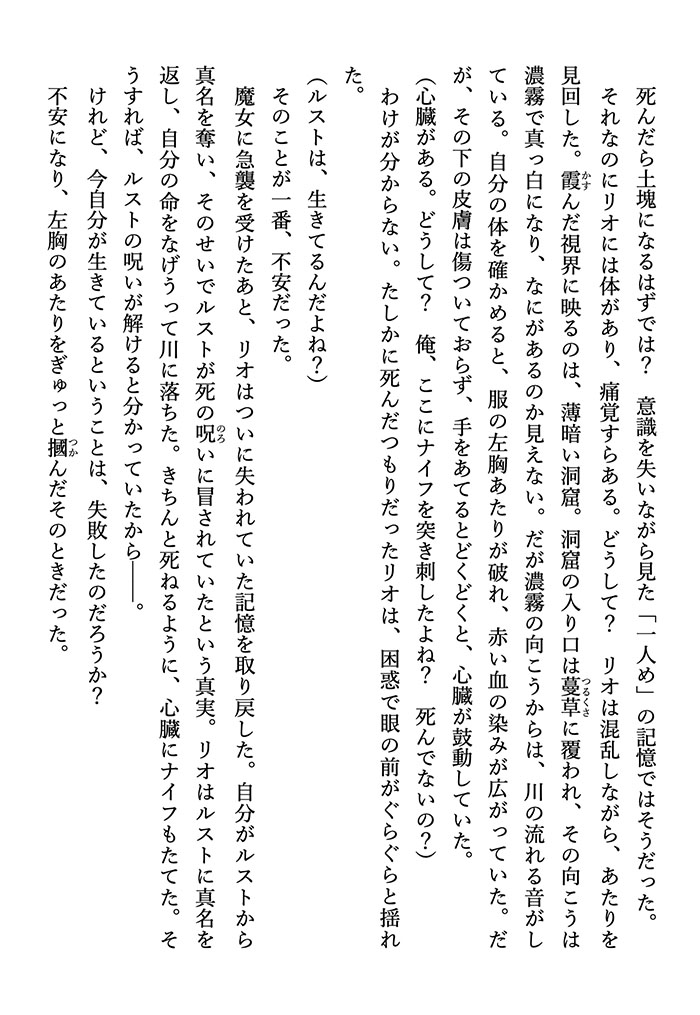 死んだら土塊になるはずでは？　意識を失いながら見た「一人め」の記憶ではそうだった。
　それなのにリオには体があり、痛覚すらある。どうして？　リオは混乱しながら、あたりを
見回した。霞かすんだ視界に映るのは、薄暗い洞窟。洞窟の入り口は蔓草つるくさに覆われ、その向こうは
濃霧で真っ白になり、なにがあるのか見えない。だが濃霧の向こうからは、川の流れる音がし
ている。自分の体を確かめると、服の左胸あたりが破れ、赤い血の染みが広がっていた。だ
が、その下の皮膚は傷ついておらず、手をあてるとどくどくと、心臓が鼓動していた。
（心臓がある。どうして？　俺、ここにナイフを突き刺したよね？　死んでないの？）
　わけが分からない。たしかに死んだつもりだったリオは、困惑で眼の前がぐらぐらと揺れ
た。
（ルストは、生きてるんだよね？）
　そのことが一番、不安だった。
　魔女に急襲を受けたあと、リオはついに失われていた記憶を取り戻した。自分がルストから
真名を奪い、そのせいでルストが死の呪のろいに冒されていたという真実。リオはルストに真名を
返し、自分の命をなげうって川に落ちた。きちんと死ねるように、心臓にナイフもたてた。そ
うすれば、ルストの呪いが解けると分かっていたから――。
　けれど、今自分が生きているということは、失敗したのだろうか？
　不安になり、左胸のあたりをぎゅっと摑つかんだそのときだった。